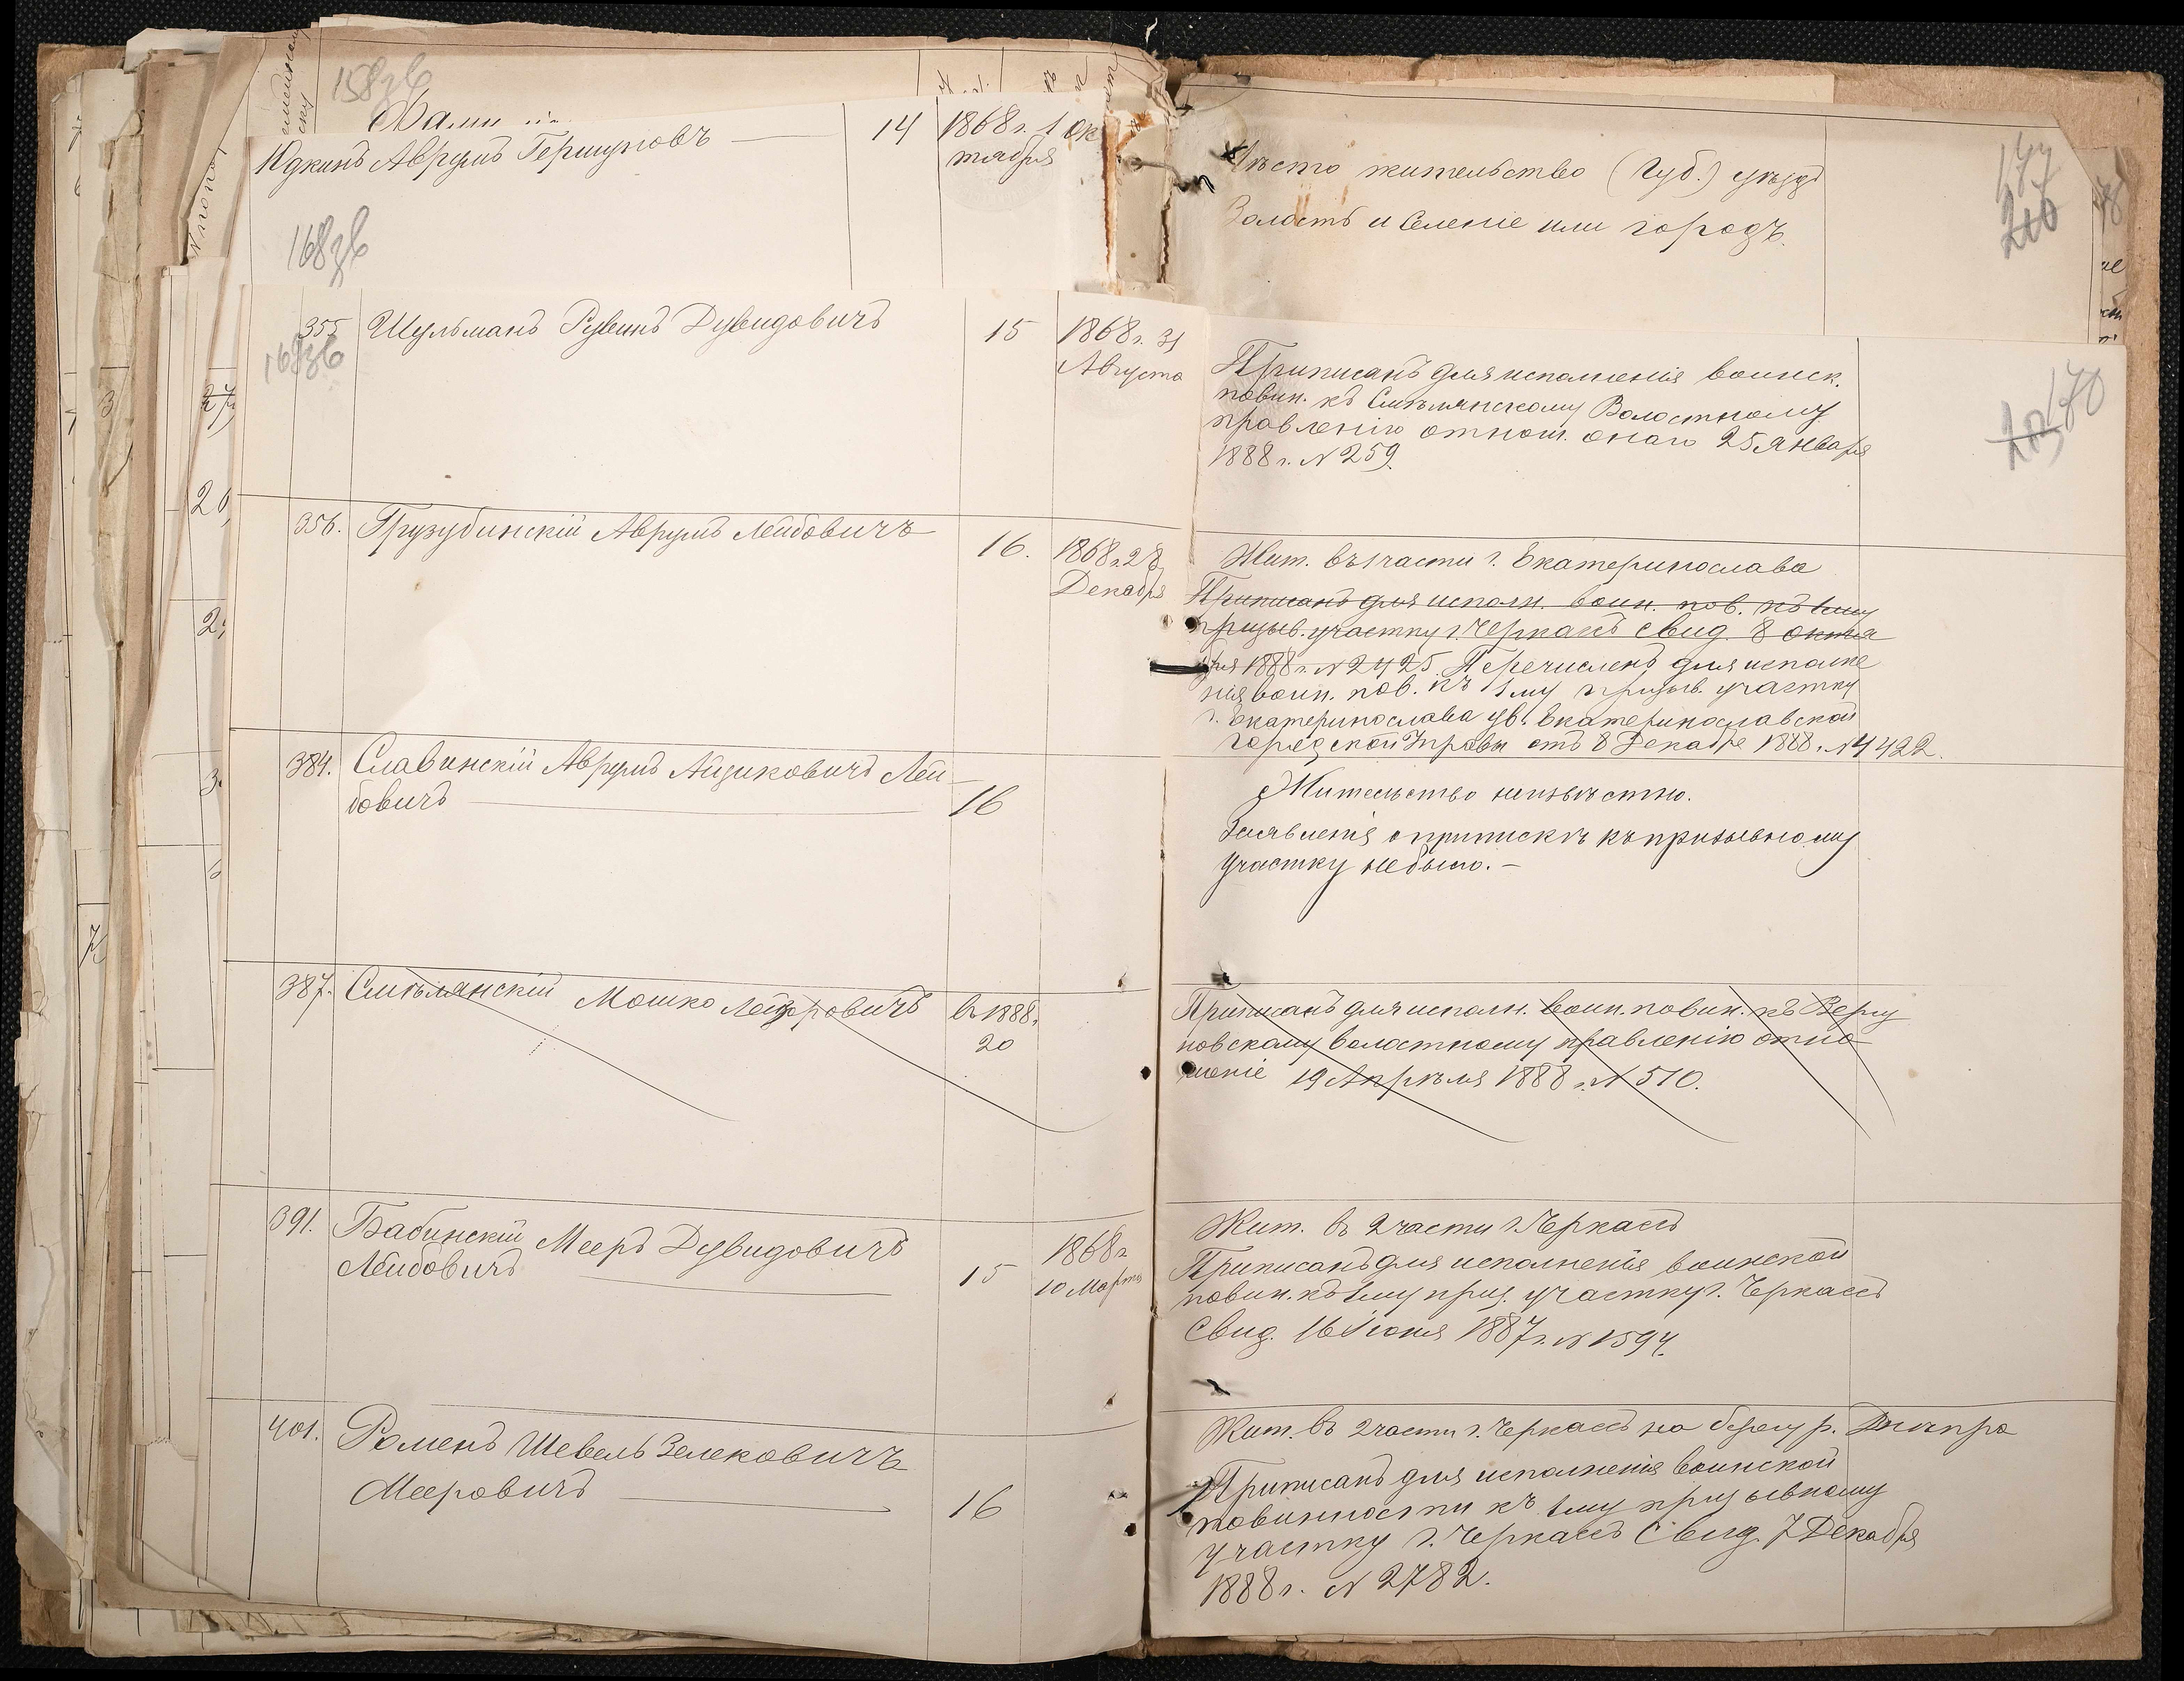 158зв
Юдкинъ Аврумъ Гершуновъ
14
1868г. 1 Ок
тября
168зв
Мѣсто жительство (Губ.) уѣздъ
Волость и Селеніе или городъ.
355
Шульманъ Рувинъ Дувидовичъ
15
1868г. 31
Августа
Приписанъ для исполненія воинск.
повин. къ Смѣлянскому Волостному
правленію отнош. онаго 25 Января
1888г. N 259.
356.
Грузубинскій Аврумъ Лейбовичъ
16.
1868г. 28
Декабря
Жит. въ 1 части г. Екатеринослава
Приписанъ для исполн. воин. пов. къ 1му
призыв. участку г. Черкасъ свид. 8 октя
бря 1888г. N 2425. Перечисленъ для исполне
нія воин. пов. къ 1му призыв. участку
г. Екатеринослава ув. Екатеринославской
городской Управы отъ 8 Декабря 1888г. N 4422.
384.
Славинскій Аврумъ Айзиковичъ Лей-
бовичъ
16
Жительство неизвѣстно.
Заявленія о припискѣ къ призывному
участку не было. -
387.
Смѣлянскій Мошко Лейзоровичъ
въ 1888г.
20
Приписанъ для исполн. воин. повин. къ Вергу
новскому волостному правленію отно
шеніе 19 Апрѣля 1888г. N 510.
391.
Бабинскій Мееръ Дувидовичъ
Лейбовичъ
15
1868г
10 Марта
Жит. въ 2 части г. Черкассъ
Приписанъ для исполненія воинской
повин. къ 1му приз. участку г. Черкассъ
Свид. 16 Іюня 1887г. N 1594.
401.
Роменъ Шевель Зелековичъ
Мееровичъ
16
Жит. въ 2 части г. Черкассъ на берегу р. Днѣпра
Приписанъ для исполненія воинской
повинности къ 1му призывному
участку г. Черкассъ Свид. 7 Декабря
1888г. N 2782.